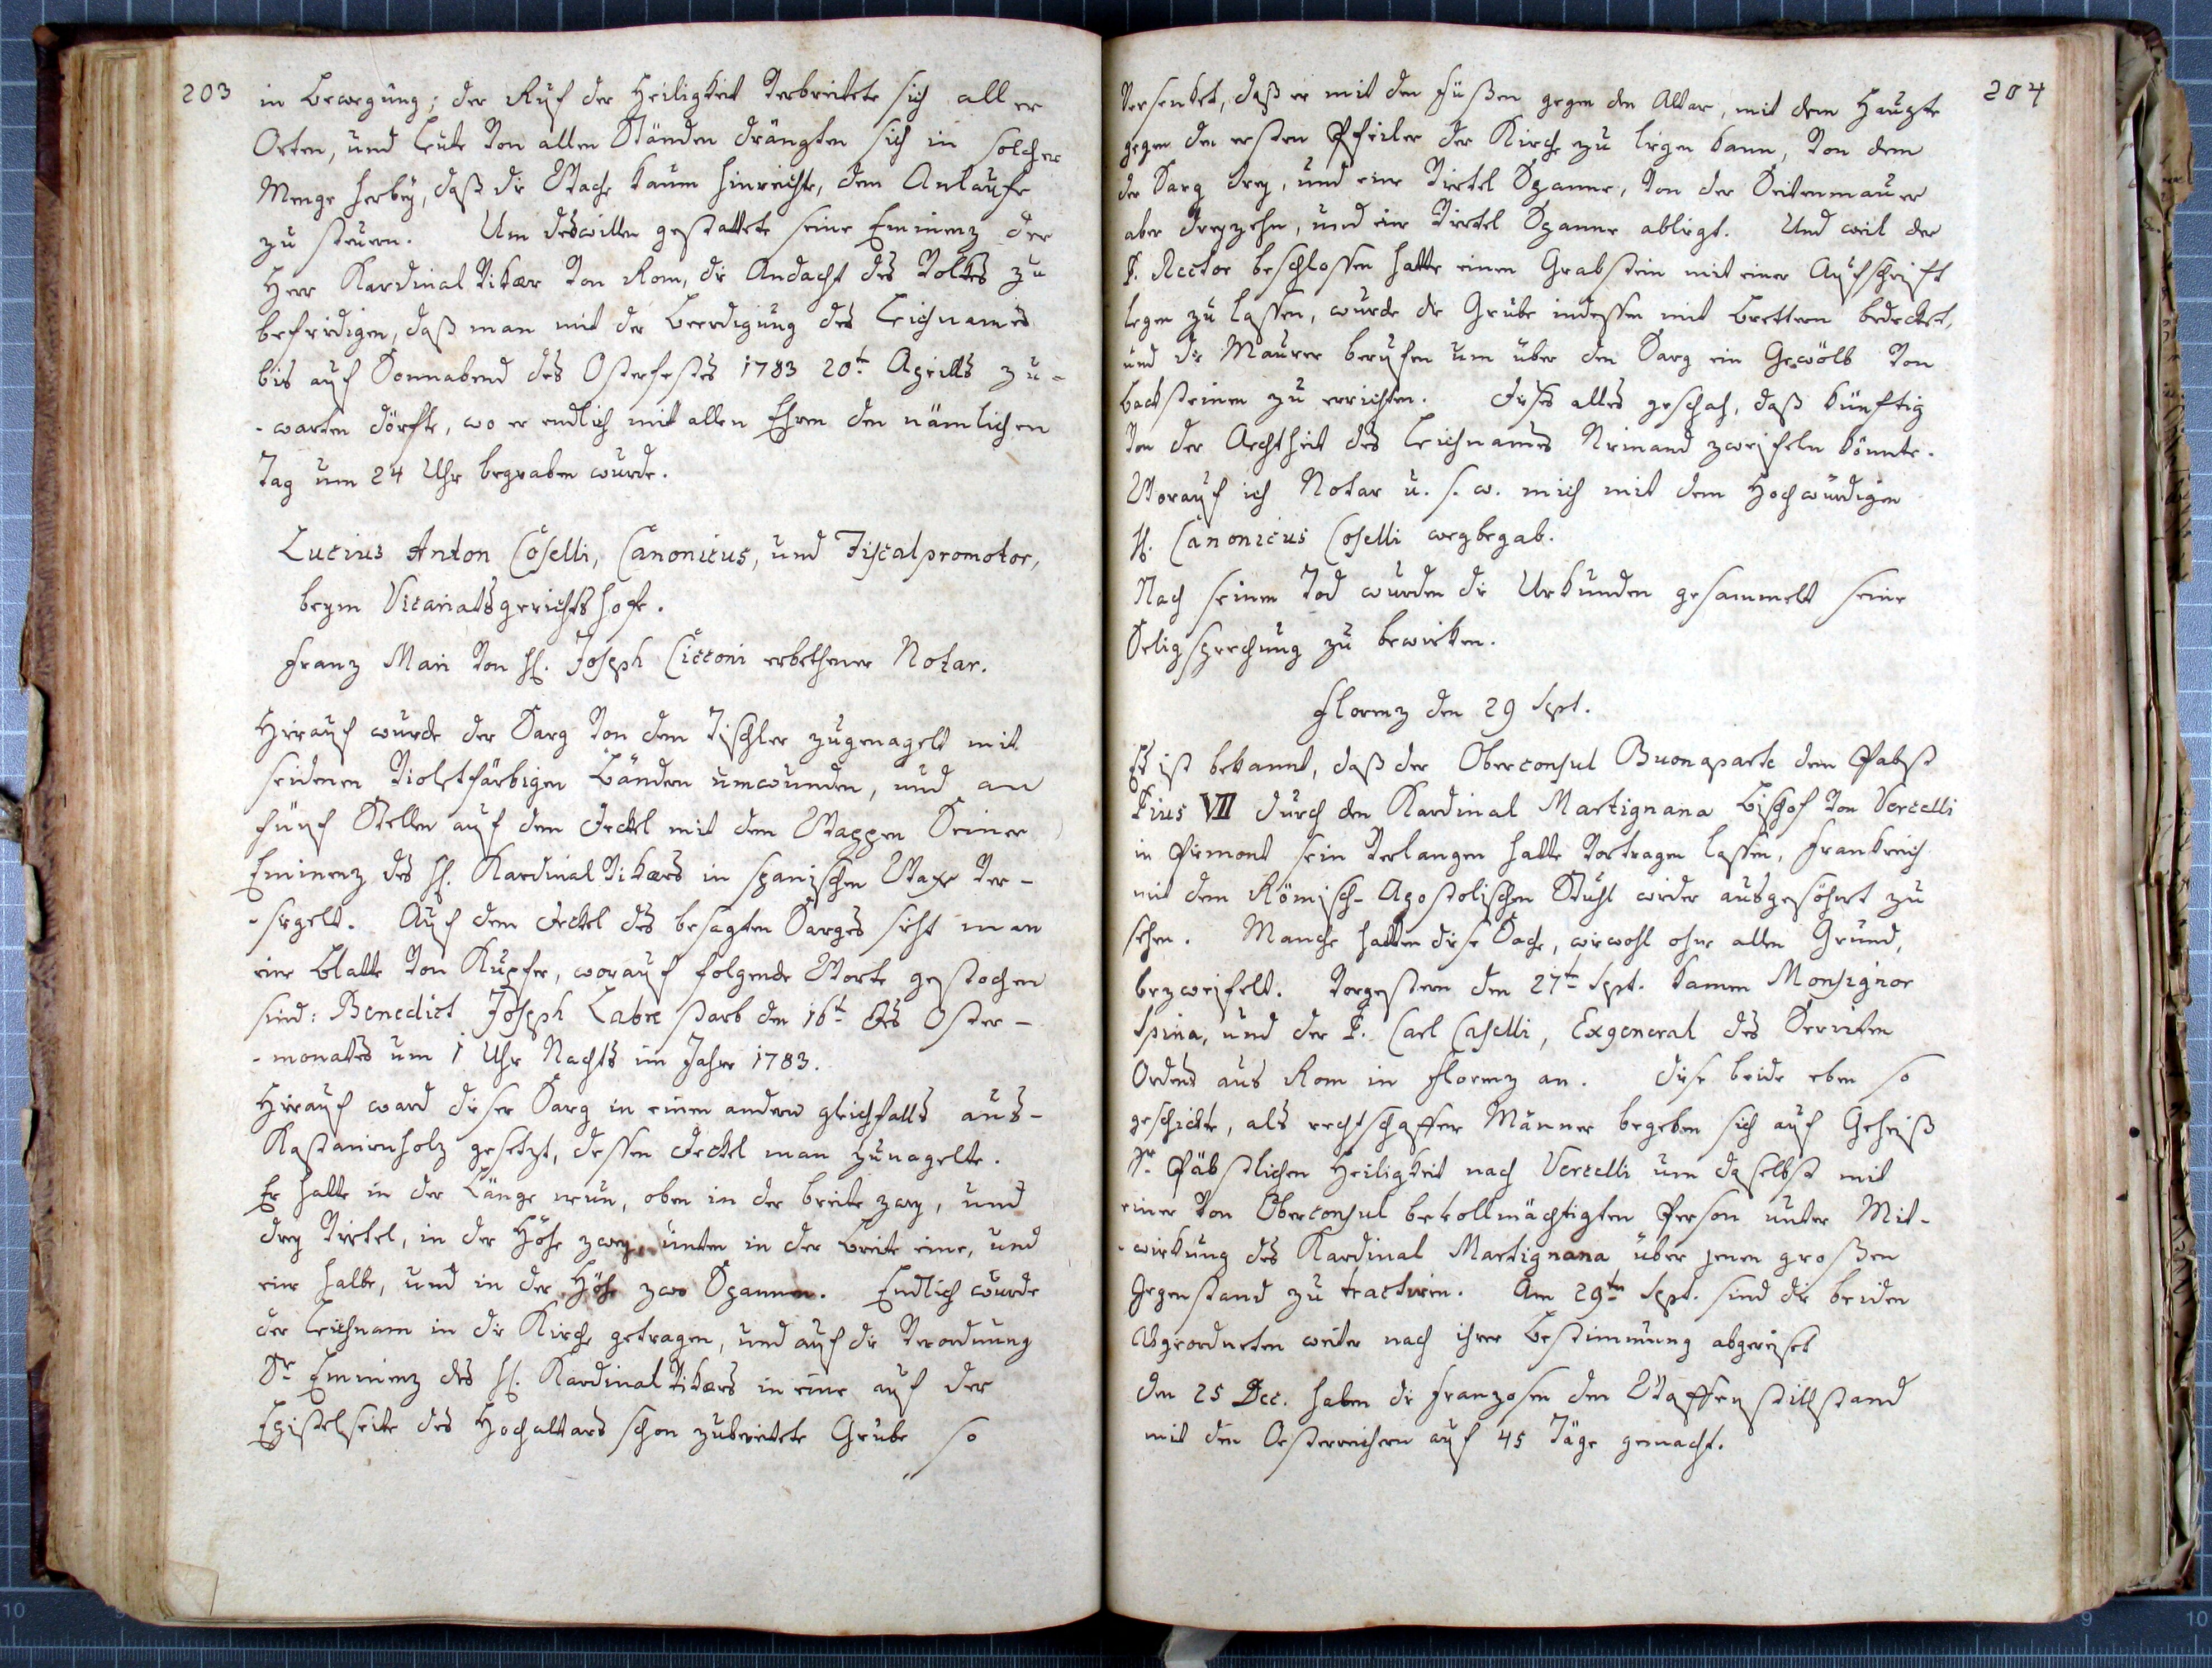 203
in Bewegung; der Ruf der Heiligkeit verbreitete sich aller
Orten, und Leute von allen Ständen drängten sich in solcher
Menge herbey, daß die Wache kaum hinreichte, dem Anlaufe
zu steuern. Um deswillen gestattete seine Eminenz der
Herr Kardinal Vikar von Rom, die Andacht des Volkes zu
befriedigen, daß man mit der Beerdigung des Leichnames
bis auf Sonnabend des Osterfestes 1783 20t Aprills zu-
-warten dörfte, wo er endlich mit allen Ehren den nämlichen
Tag um 24 Uhr begraben wurde.
Lucius Anton Coselli, Canonicus, und Fiscalpromotor,
beym Vicariatsgerichtshofe.
Franz Mari von H. Joseph Cicconi erbethener Notar.
Hierauf wurde der Sarg von dem Tischler zugenagelt mit
seidenen violetfärbigen Bändern umwunden, und an
fünf Stellen auf dem Deckel mit dem Wappen Seiner
Eminenz des H. Kardinal Vikars in spanischen Wax ver-
-siegelt. Auf dem Deckel des besagten Sarges sieht man
eine Blatte von Kupfer, worauf folgende Worte gestochen
sind: Benedict Joseph Labre starb den 16t des Oster-
-monates um 1 Uhr Nachts im Jahre 1783.
Hierauf ward dieser Sarg in einen andern gleichfalls aus-
Kastanienholz gesetzt, dessen Deckel man zunagelte.
Er hatte in der Länge neun, oben in der breite zwey, und
drey Viertel, in der Höhe zwey, unten in der Breite eine, und
eine halbe, und in der Höhe zwo Spannen. Endlich wurde
der Leichnam in die Kirche getragen, und auf die Verordnung
Sr Eminenz des H. Kardinal Vikars in eine auf der
Epistelseite des Hochaltars schon zubereitete Grube so
204
versenket, daß er mit den Füßen gegen den Altar, mit dem Haupte
gegen den ersten Pfeiler der Kirche zu liegen kam, von dem
der Sarg drey, und eine Viertel Spanne, von der Seitenmauer
aber dreyzehn, und eine Viertel Spanne abliegt. Und weil der
P. Rector beschlossen hatte einen Grabstein mit einer Aufschrift
legen zu lassen, wurde die Grube indessen mit Brettern bedecket,
und die Maurer berufen um über den Sarg ein Gewölb von
Backsteinen zu errichten. Dieses alles geschah, daß künftig
von der Aechtheit des Leichnames Niemand zweifeln könnte.
Worauf ich Notar u. s. w. mich mit dem Hochwürdigen
H. Canonicus Coselli wegbegab.
Nach seinem Tod wurden die Urkunden gesammelt seine
Seligsprechung zu bewirken.
Florenz den 29 Sept.
Es ist bekannt, daß der Oberconsul Buonaparte dem Pabst
Pius VII durch den Kardinal Martignana Bischof von Vercelli
in Piemont sein Verlangen hatte vortragen lassen, Frankreich
mit dem Römisch-Apostolischen Stuhl wieder ausgesöhnt zu
sehen. Manche hatten diese Sache, wiewohl ohne allen Grund,
bezweifelt. Vorgestern den 27t Sept. kamen Monsignor
Spina, und der P. Carl Caselli, Exgeneral des Serviten
Ordens aus Rom in Florenz an. Diese beide eben so
geschickte, als rechtschaffene Männer begeben sich auf Geheiß
Sr Päbstlichen Heiligkeit nach Vercelli um daselbst mit
einer von Oberconsul bevollmächtigten Person unter Mit-
-wirkung des Kardinal Martignana über jenen großen
Gegenstand zu tractiren. Am 29ten Sept. sind die beiden
Abgeordneten weiter nach ihrer Bestimmung abgereiset
Den 25 Dec. haben die Franzosen den Waffenstillstand
mit den Oesterreichern auf 45 Täge gemacht.